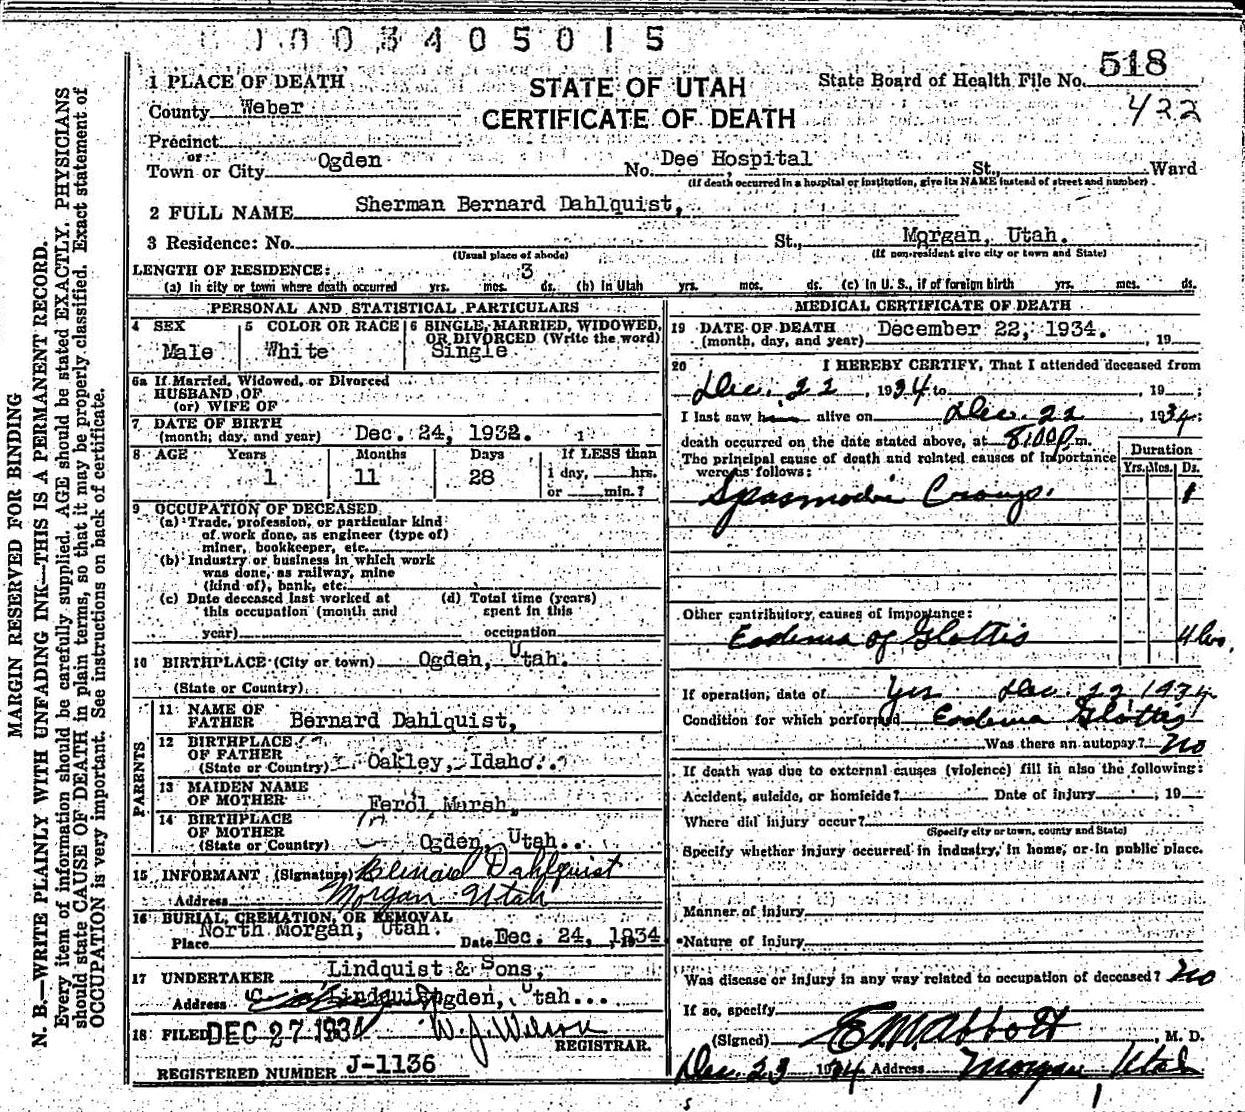 1003405015
518
1 PLACE OF DEATH
STATE OF UTAH
State Board of Health File No.
422
County Weber
CERTIFICATE OF DEATH
Precinct
or
Town or City Ogden No. Dee Hospital St., Ward
(If death occurred in a hospital or institution, give its NAME instead of street and number)
2 FULL NAME Sherman Bernard Dahlquist,
3 Residence: No. St., Morgan, Utah.
(Usual place of abode) (If non-resident give city or town and State)
LENGTH OF RESIDENCE: 3
(a) In city or town where death occurred yrs. mos. ds. (b) In Utah yrs. mos. ds. (c) In U. S., if of foreign birth yrs. mos. ds.
PERSONAL AND STATISTICAL PARTICULARS
4 SEX 5 COLOR OR RACE 6 SINGLE, MARRIED, WIDOWED,
OR DIVORCED (Write the word)
Male White Single
6a If Married, Widowed, or Divorced
HUSBAND OF
(or) WIFE OF
7 DATE OF BIRTH
(month, day, and year) Dec. 24, 1932.
8 AGE Years Months Days If LESS than
1 day, hrs.
1 11 28
or min.?
9 OCCUPATION OF DECEASED
(a) Trade, profession, or particular kind
of work done, as engineer (type of)
miner, bookkeeper, etc.
(b) Industry or business in which work
was done, as railway, mine
(kind of), bank, etc.
(c) Date deceased last worked at (d) Total time (years)
this occupation (month and spent in this
year) occupation
10 BIRTHPLACE (City or town) Ogden, Utah.
(State or Country)
PARENTS
11 NAME OF
FATHER Bernard Dahlquist,
12 BIRTHPLACE
OF FATHER
(State or Country) Oakley, Idaho.
13 MAIDEN NAME
OF MOTHER Ferol Marsh,
14 BIRTHPLACE
OF MOTHER
(State or Country) Ogden, Utah..
15 INFORMANT (Signature) Bernard Dahlquist
Address Morgan Utah
16 BURIAL, CREMATION, OR REMOVAL
Place North Morgan, Utah. Date Dec. 24, 1934
17 UNDERTAKER Lindquist & Sons,
Address Lindquist Ogden, Utah...
18 FILED DEC 27 1934 W. J. Wilson
REGISTRAR.
REGISTERED NUMBER J-1136
MEDICAL CERTIFICATE OF DEATH
19 DATE OF DEATH December 22, 1934.
(month, day, and year) , 19
20 I HEREBY CERTIFY, That I attended deceased from
Dec. 22, 1934 to , 19 ;
I last saw him alive on Dec. 22 1934;
death occurred on the date stated above, at 8:00 p m.
The principal cause of death and related causes of importance
were as follows:
Duration
Yrs. Mos. Ds.
Spasmodic Croup. 1
Other contributory causes of importance:
Eodema of Glottis 4 hrs.
If operation, date of Yes Dec. 22 1934
Condition for which performed Eodema Glottis
Was there an autopsy? No
If death was due to external causes (violence) fill in also the following:
Accident, suicide, or homicide? Date of injury , 19
Where did injury occur?
(Specify city or town, county and State)
Specify whether injury occurred in industry, in home, or in public place.
Manner of injury
Nature of Injury
Was disease or injury in any way related to occupation of deceased? No
If so, specify
(Signed) E M Abbott , M. D.
Dec. 23 1934 Address Morgan, Utah
MARGIN RESERVED FOR BINDING
N. B.—WRITE PLAINLY WITH UNFADING INK—THIS IS A PERMANENT RECORD.
Every item of information should be carefully supplied. AGE should be stated EXACTLY. PHYSICIANS
should state CAUSE OF DEATH in plain terms, so that it may be properly classified. Exact statement of
OCCUPATION is very important. See instructions on back of certificate.